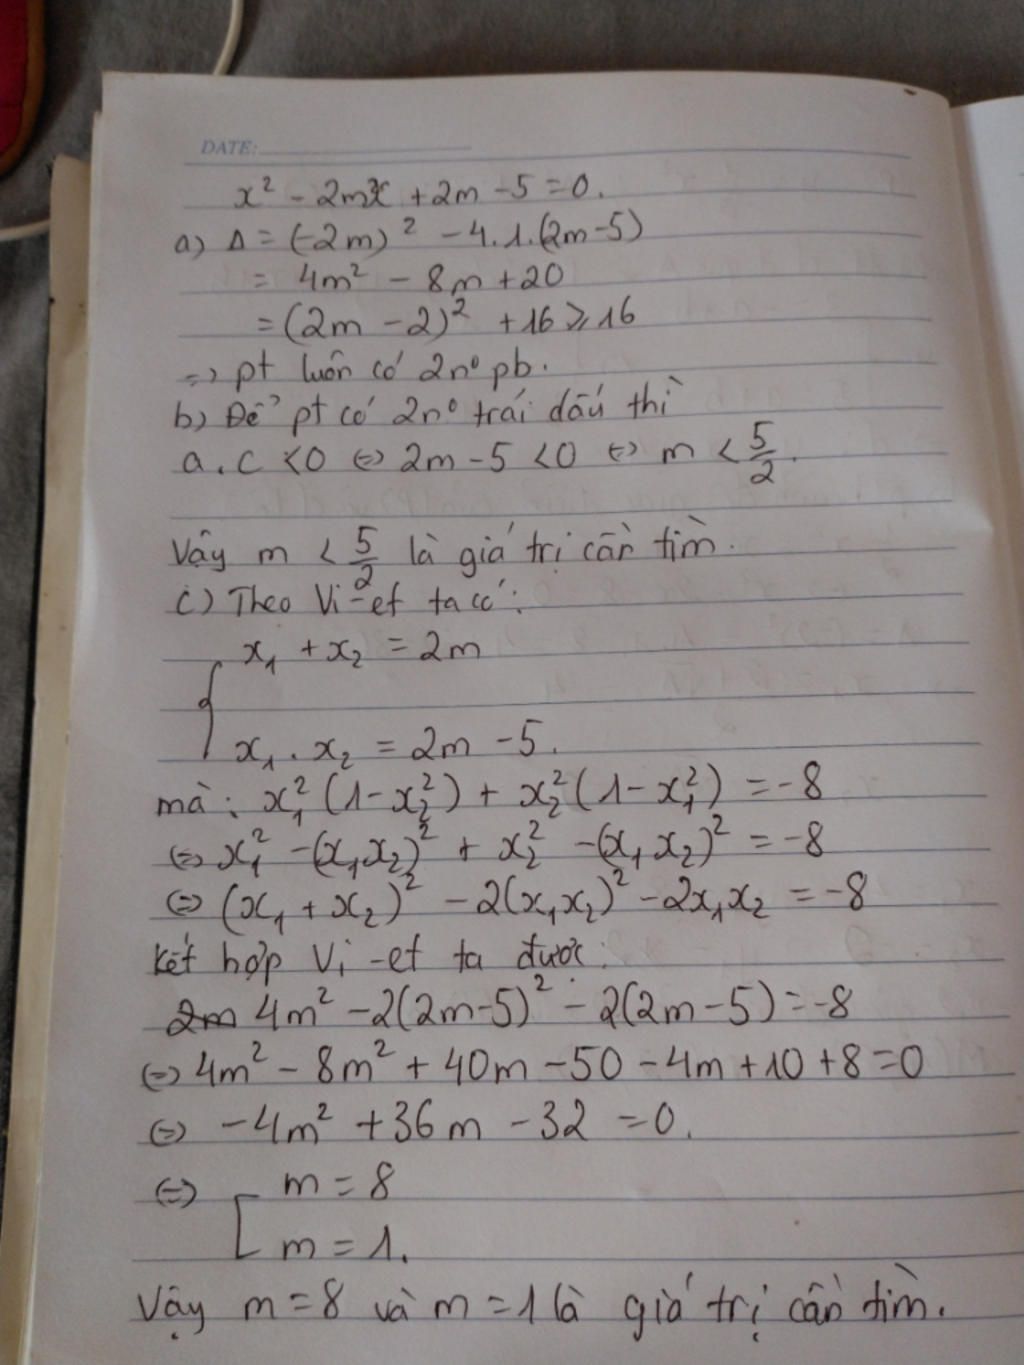 DATE:
x² - 2mx + 2m - 5 = 0.
a) Δ = (-2m)² - 4.1.(2m-5)
= 4m² - 8m + 20
= (2m - 2)² + 16 ⩾ 16
=> pt luôn có 2n⁰ pb.
b) Để pt có 2n⁰ trái dấu thì
a.c < 0 <=> 2m - 5 < 0 <=> m < 5/2.
Vậy m < 5/2 là giá trị cần tìm.
c) Theo Vi-et ta có:
{ x₁ + x₂ = 2m
x₁ . x₂ = 2m - 5.
mà: x₁² (1 - x₂²) + x₂² (1 - x₁²) = -8
<=> x₁² - (x₁x₂)² + x₂² - (x₁x₂)² = -8
<=> (x₁ + x₂)² - 2(x₁x₂)² - 2x₁x₂ = -8
Kết hợp Vi-et ta được:
2m 4m² - 2(2m-5)² - 2(2m-5) = -8
<=> 4m² - 8m² + 40m - 50 - 4m + 10 + 8 = 0
<=> -4m² + 36m - 32 = 0.
<=> [ m = 8
m = 1.
Vậy m = 8 và m = 1 là giá trị cần tìm.